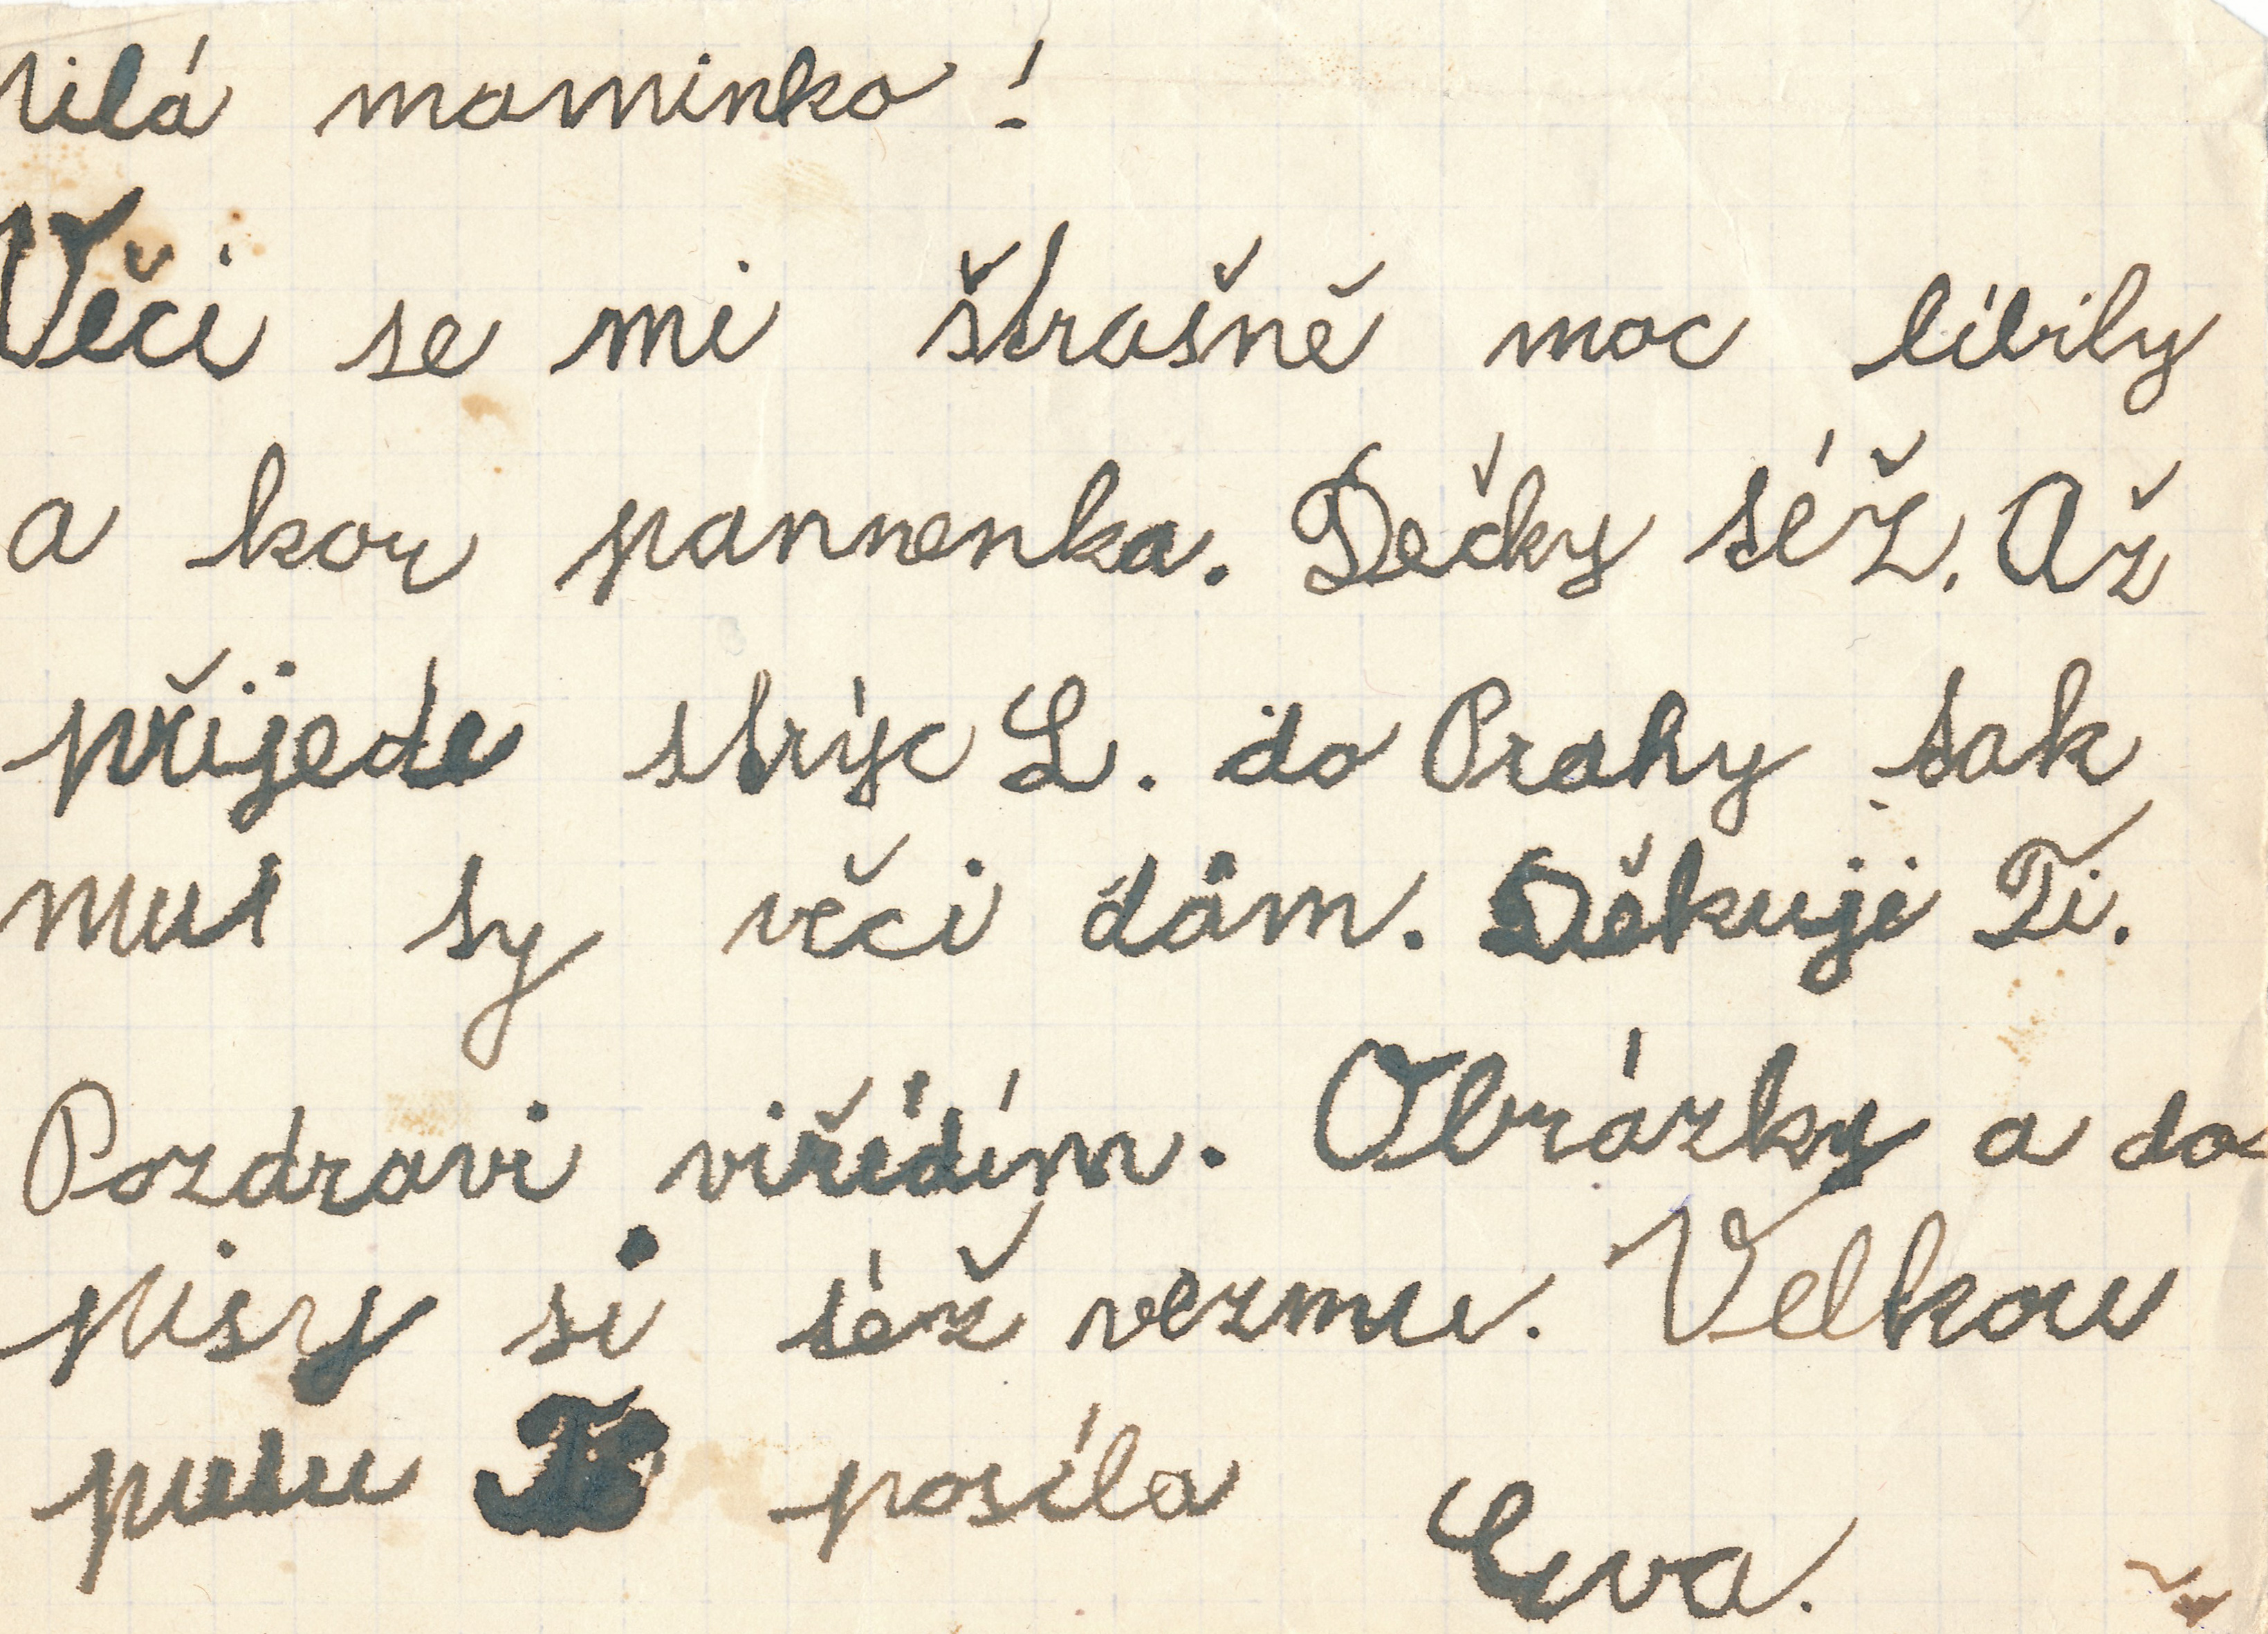 Milá maminko!
Věci se mi štrašně moc líbily
a kor pannenka. Dečky též. Až
přijede strýc L. do Prahy tak
mu ty věci dám. Děkuji Ti.
Pozdravi vyřídím. Obrázky a do-
pisy si též vezmu. Velkou
pusu Ti posílá
Eva.